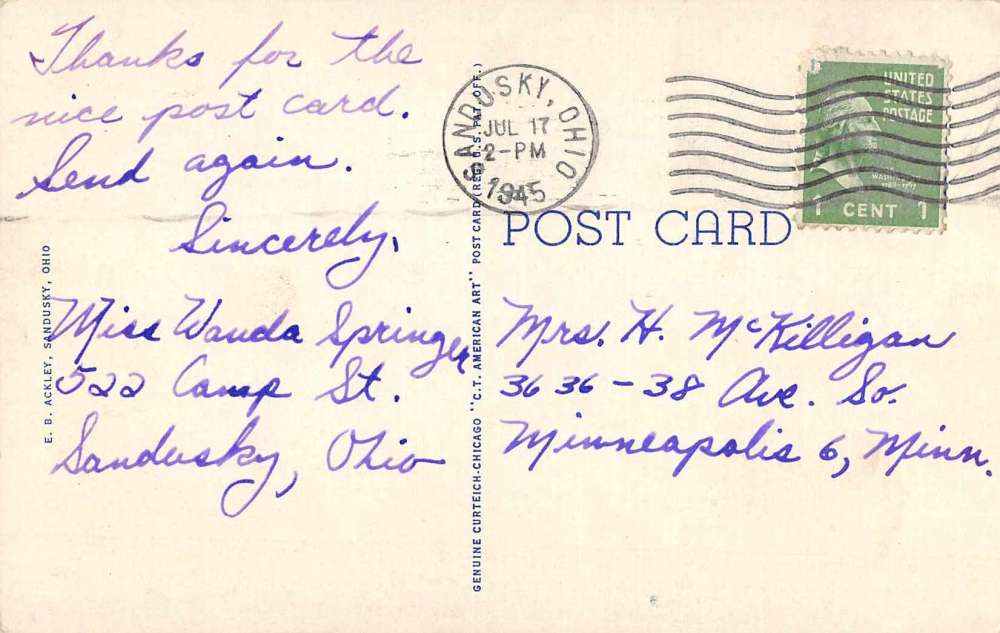 Thanks for the
nice post card.
Send again.
Sincerely,
Miss Wanda Springer
522 Camp St.
Sandusky, Ohio
E. B. ACKLEY, SANDUSKY, OHIO
GENUINE CURTEICH-CHICAGO "C.T. AMERICAN ART" POST CARD (REG. U.S. PAT. OFF.)
SANDUSKY, OHIO
JUL 17
2-PM
1945
UNITED
STATES
POSTAGE
WASHINGTON
1 CENT 1
POST CARD
Mrs. H. McKilligan
3636-38 Ave. So.
Minneapolis 6, Minn.